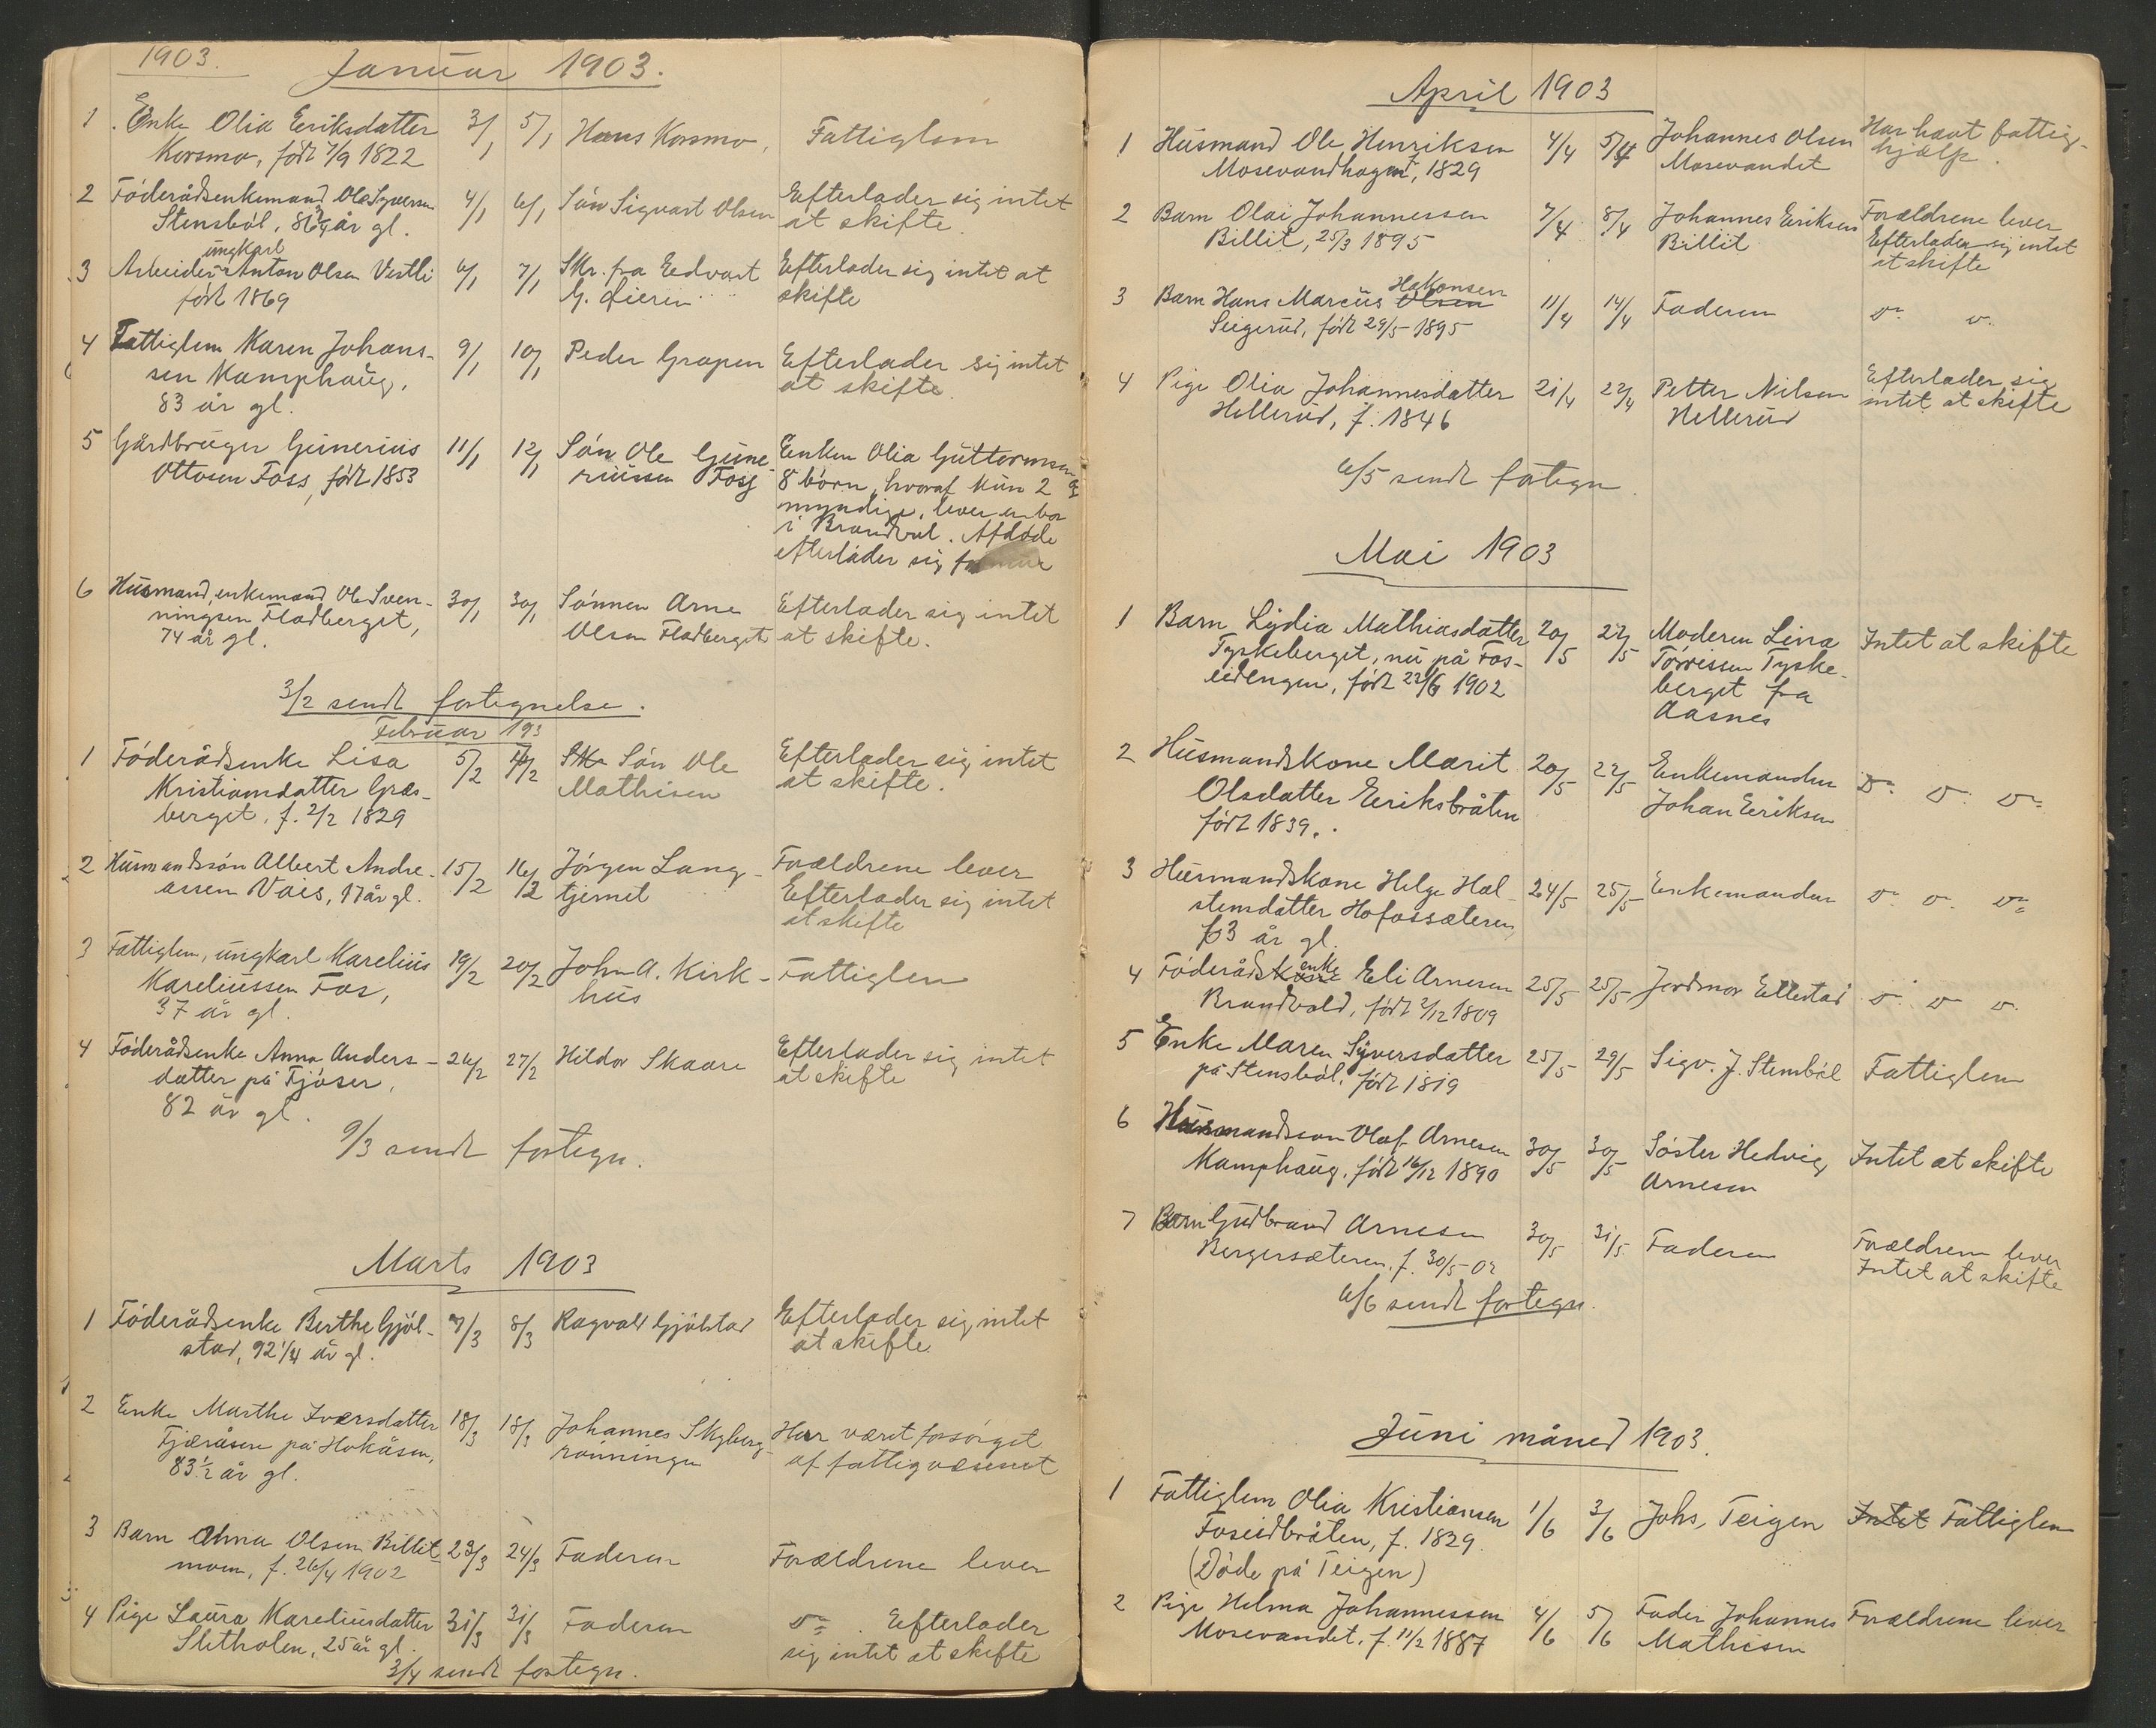 1903.
Januar 1903.
1 Enke Olia Eriksdatter 3/1 5/1 Hans Korsmo, Fattiglem
Korsmo, født 7/9 1822
2 Föderådsenkemand Ole Syversen 4/1 6/1 Sön Sigvart Olsen Efterlader sig intet
Stensböl, 86 3/4 år gl. at skifte.
ungkarl
3 Arbeider Anton Olsen Vestli 6/1 7/1 Skr. fra Edvart Efterlader sig intet at
født 1869 G. Lieren skifte
4 Fattiglem Karen Johans- 9/1 10/1 Peder Grapen Efterlader sig intet
sen Kamphaug, at skifte.
83 år gl.
5 Gårdbruger Gunerius 11/1 12/1 Sön Ole Gune- Enken Olia Guttormsen og
Ottosen Foss, født 1853 riussen Foss 8 börn, hvoraf kun 2
myndige, lever en bor
i Brandval. Afdöde
efterlader sig formue
6 Husmand, enkemand Ole Sven- 30/1 30/1 Sönnen Arne Efterlader sig intet
ningsen Fladberget, Olsen Fladberget at skifte.
74 år gl.
3/2 sendt fortegnelse.
Februar 193
1 Föderådsenke Lisa 5/2 7/2 Skr Sön Ole Efterlader sig intet
Kristiansdatter Græs- Mathisen at skifte.
berget, f. 2/2 1829
2 Husmandssön Albert Andre- 15/2 16/2 Jörgen Lang- Forældrene lever
assen Vais, 17 år gl. tjernet Efterlader sig intet
at skifte
3 Fattiglem, ungkarl Karelius 19/2 20/2 John A. Kirk- Fattiglem
Kareliussen Fos, hus
37 år gl.
4 Föderådsenke Anna Anders- 26/2 27/2 Hildor Skaare Efterlader sig intet
datter på Tjöser, at skifte
82 år gl.
9/3 sendt fortegn.
Marts 1903
1 Föderådsenke Berthe Gjöl- 7/3 8/3 Ragvald Gjölstad Efterlader sig intet
stad, 92 1/4 år gl. at skifte.
2 Enke Marthe Iversdatter 18/3 18/3 Johannes Skyberg- Har været forsörget
Fjæråsen på Hokåsen, rönningen af fattigvæsenet
83 1/2 år gl.
3 Barn Anna Olsen Billit- 23/3 24/3 Faderen Forældrene lever
moen, f. 26/4 1902
4 Pige Laura Kareliusdatter 31/3 31/3 Faderen do. Efterlader
Sletholen, 25 år gl. sig intet at skifte
3/4 sendt fortegn.
April 1903
1 Husmand Ole Henriksen 4/4 5/4 Johannes Olsen Har havt fattig-
Mosevandhagen, 1829 Mosevandet hjælp.
2 Barn Olai Johannessen 7/4 8/4 Johannes Eriksen Forældrene lever
Billit, 25/3 1895 Billit Efterlader sig intet
at skifte
Hakonsen
3 Barn Hans Marcus Olsen 11/4 14/4 Faderen do. do.
Seigerud, født 29/5 1895
4 Pige Olia Johannesdatter 21/4 22/4 Petter Nilsen Efterlader sig
Hellerud, f. 1846 Hellerud intet at skifte
6/5 sendt fortegn.
Mai 1903
1 Barn Lydia Mathiasdatter 20/5 22/5 Moderen Lina Intet at skifte
Tyskeberget, nu på Fos- Törrissen Tyske-
eidengen, født 22/6 1902 berget fra
Aasnes
2 Husmandskone Marit 20/5 22/5 Enkemanden do. do. do.
Olsdatter Eriksbråten Johan Eriksen
født 1839.
3 Husmandskone Helge Hal- 24/5 25/5 Enkemanden do. do. do.
stensdatter Hofossæteren,
63 år gl.
enke
4 Föderådskone Eli Arnesen 25/5 25/5 Jordmor Ellestad do. do. do.
Brandvold, født 2/12 1809
5 Enke Maren Syversdatter 25/5 29/5 Sigv. J. Stensböl Fattiglem
på Stensböl, født 1819
6 Husmandssön Olaf Arnesen 30/5 30/5 Söster Hedvig Intet at skifte
Kamphaug, født 16/12 1890 Arnesen
7 Barn Gudbrand Arnesen 30/5 31/5 Faderen Forældrene lever
Bergersæteren, f. 30/5-02 Intet at skifte
6/6 sendt fortegn.
Juni måned 1903.
1 Fattiglem Olia Kristiansen 1/6 3/6 Johs. Teigen Intet Fattiglem
Foseidbråten, f. 1829.
(Döde på Teigen)
2 Pige Helma Johannessen 4/6 5/6 Fader Johannes Forældrene lever
Mosevandet, f. 11/2 1887 Mathisen